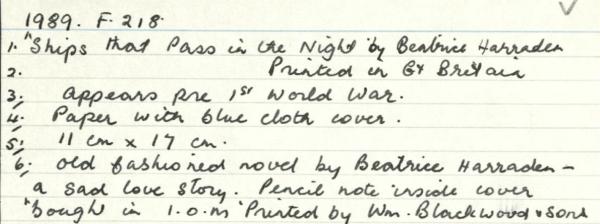 1989. F. 218.
1. "Ships that Pass in the Night" by Beatrice Harraden
2. Printed in Gt Britain
3. appears pre 1st World War.
4. Paper with blue cloth cover.
5. 11 cm x 17 cm.
6. old fashioned novel by Beatrice Harraden -
a sad love story. Pencil note inside cover
"bought in 1.O.M" Printed by Wm. Blackwood & Sons